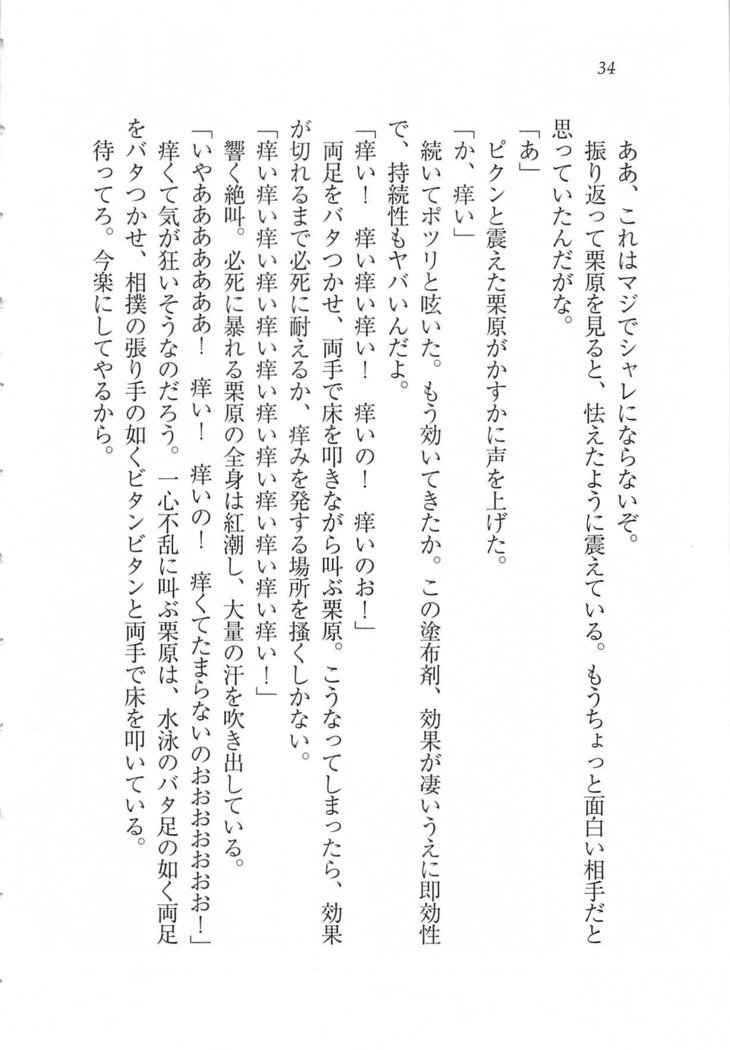 34
ああ、これはマジでシャレにならないぞ。
振り返って栗原を見ると、怯えたように震えている。もうちょっと面白い相手だと
思っていたんだがな。
「あ」
ピクンと震えた栗原がかすかに声を上げた。
「か、痒い」
続いてポツリと呟いた。もう効いてきたか。この塗布剤、効果が凄いうえに即効性
で、持続性もヤバいんだよ。
「痒い！　痒い痒い！　痒いの！　痒いのお！」
両足をバタつかせ、両手で床を叩きながら叫ぶ栗原。こうなってしまったら、効果
が切れるまで必死に耐えるか、痒みを発する場所を掻くしかない。
「痒い痒い痒い痒い痒い痒い痒い痒い痒い痒い痒い！」
響く絶叫。必死に暴れる栗原の全身は紅潮し、大量の汗を吹き出している。
「いやああああああ！　痒い！　痒いの！　痒くてたまらないのおおおおおおお！」
痒くて気が狂いそうなのだろう。一心不乱に叫ぶ栗原は、水泳のバタ足の如く両足
をバタつかせ、相撲の張り手の如くビタンビタンと両手で床を叩いている。
待ってろ。今楽にしてやるから。